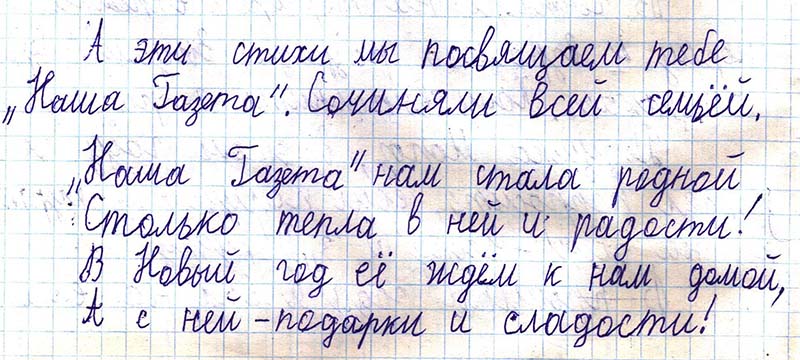 А эти стихи мы посвящаем тебе
„Наша Газета". Сочиняли всей семьёй.
„Наша Газета" нам стала родной
Столько тепла в ней и радости!
В Новый год её ждём к нам домой,
А с ней - подарки и сладости!